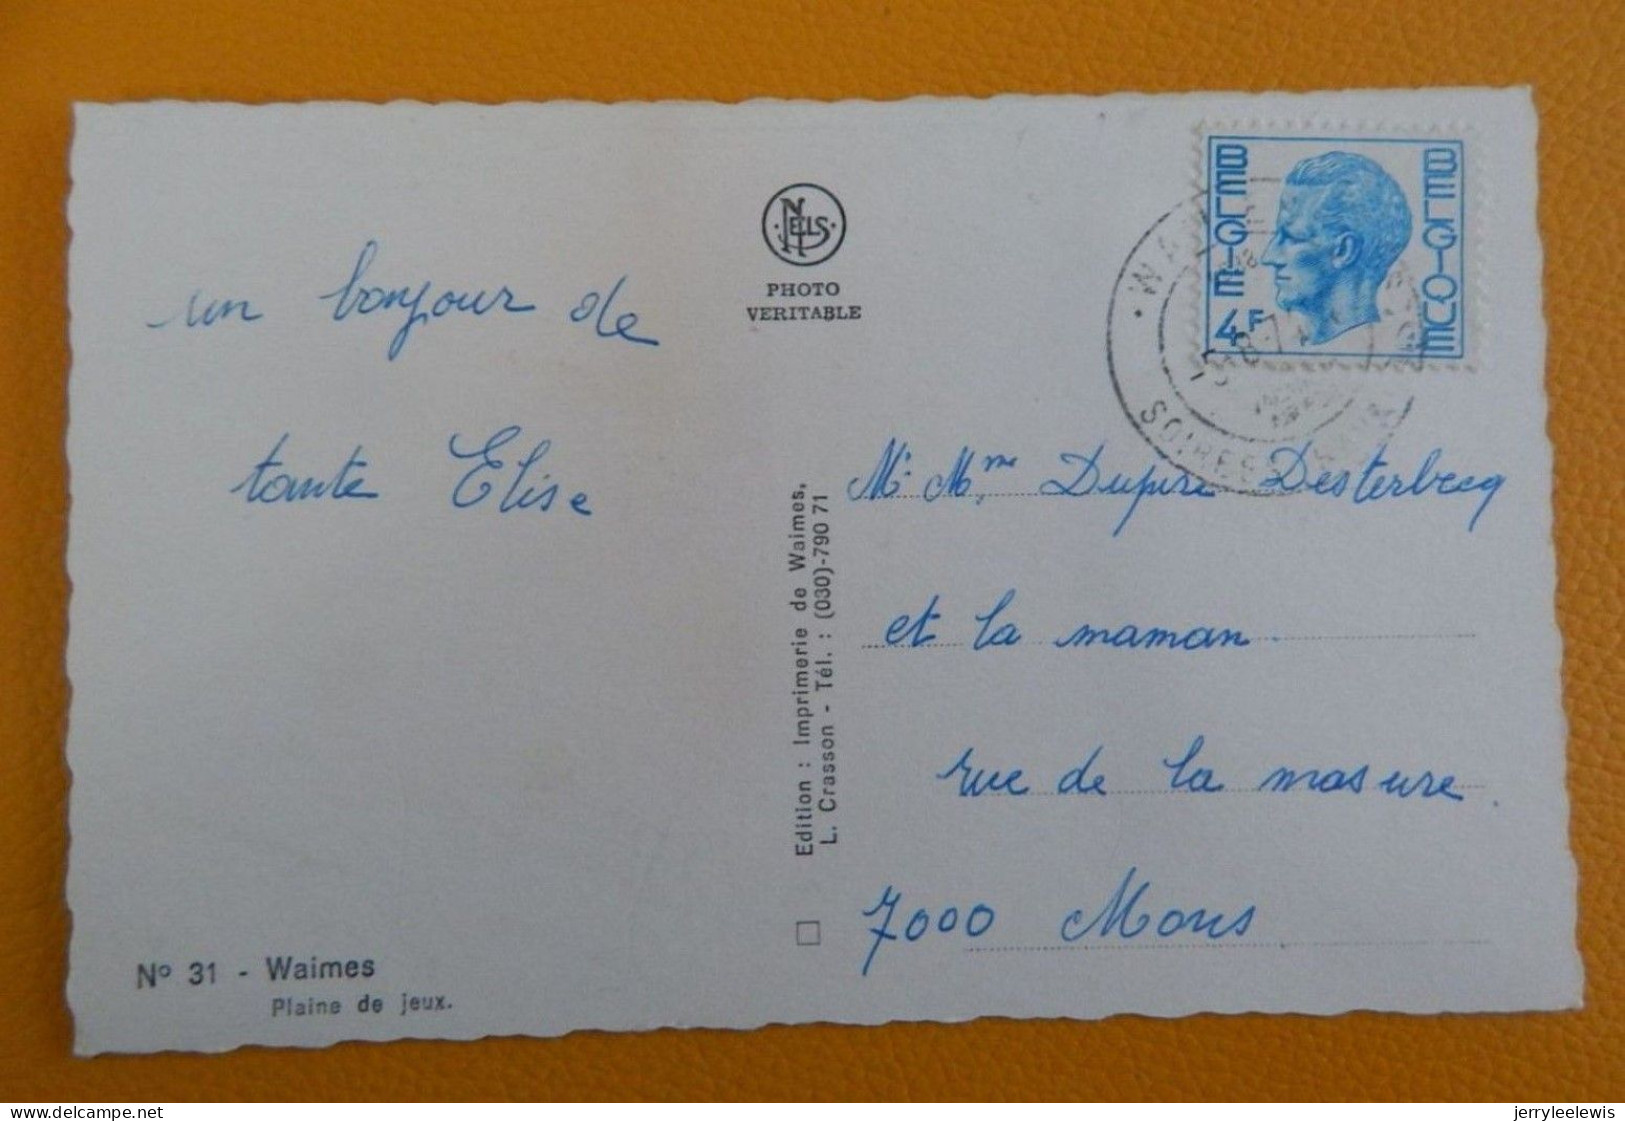 BELGIE
BELGIQUE
4F
NELS
PHOTO
VERITABLE
un bonjour de
tante Elise
Mr Mme Dupire Desterbecq
et la maman.
rue de la masure.
7000 Mons
Edition : Imprimerie de Waimes,
L. Crasson - Tél. : (030)-790 71
No 31 - Waimes
Plaine de jeux.
delcampe.net
jerryleelewis